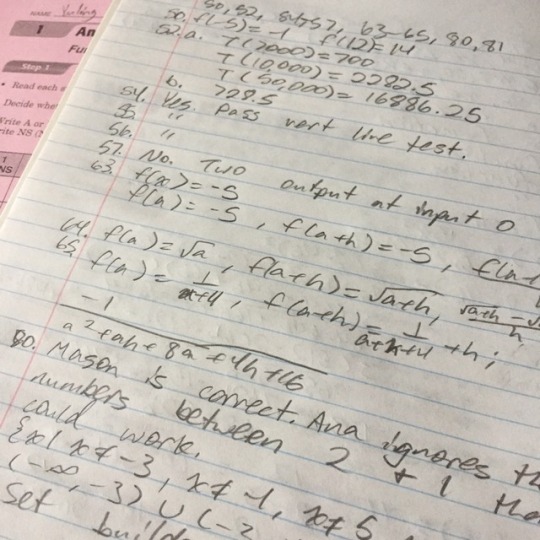 NAME Yuling
1 An
Fu
Step 1
• Read each s
Decide whe
Write A or
rite NS (N
1
NS
50, 52, 54-57, 63-65, 80, 81
50. f(-5)=-1 f(12)=14
52.a. T(7000)=700
T(10,000)=2282.5
T(50,000)=16886.25
b. 728.5
54. Yes. Pass vert line test.
55. "
56. "
57. No. Two output at input 0
63. f(x)=-5
f(a)=-5, f(a+h)=-5, f(a+
64. f(a)=√a, f(a+h)=√a+h, √a+h-√
h
65. f(a)= 1/a+4, f(a+h)= 1/a+h+4 +h;
-1
a²+ah+8a+4h+16
80. Mason is correct. Ana ignores th
numbers between 2 + 1 that
could work.
{x|x≠-3, x≠-1, x≠5
(-∞,-3)∪(-3
Set builde